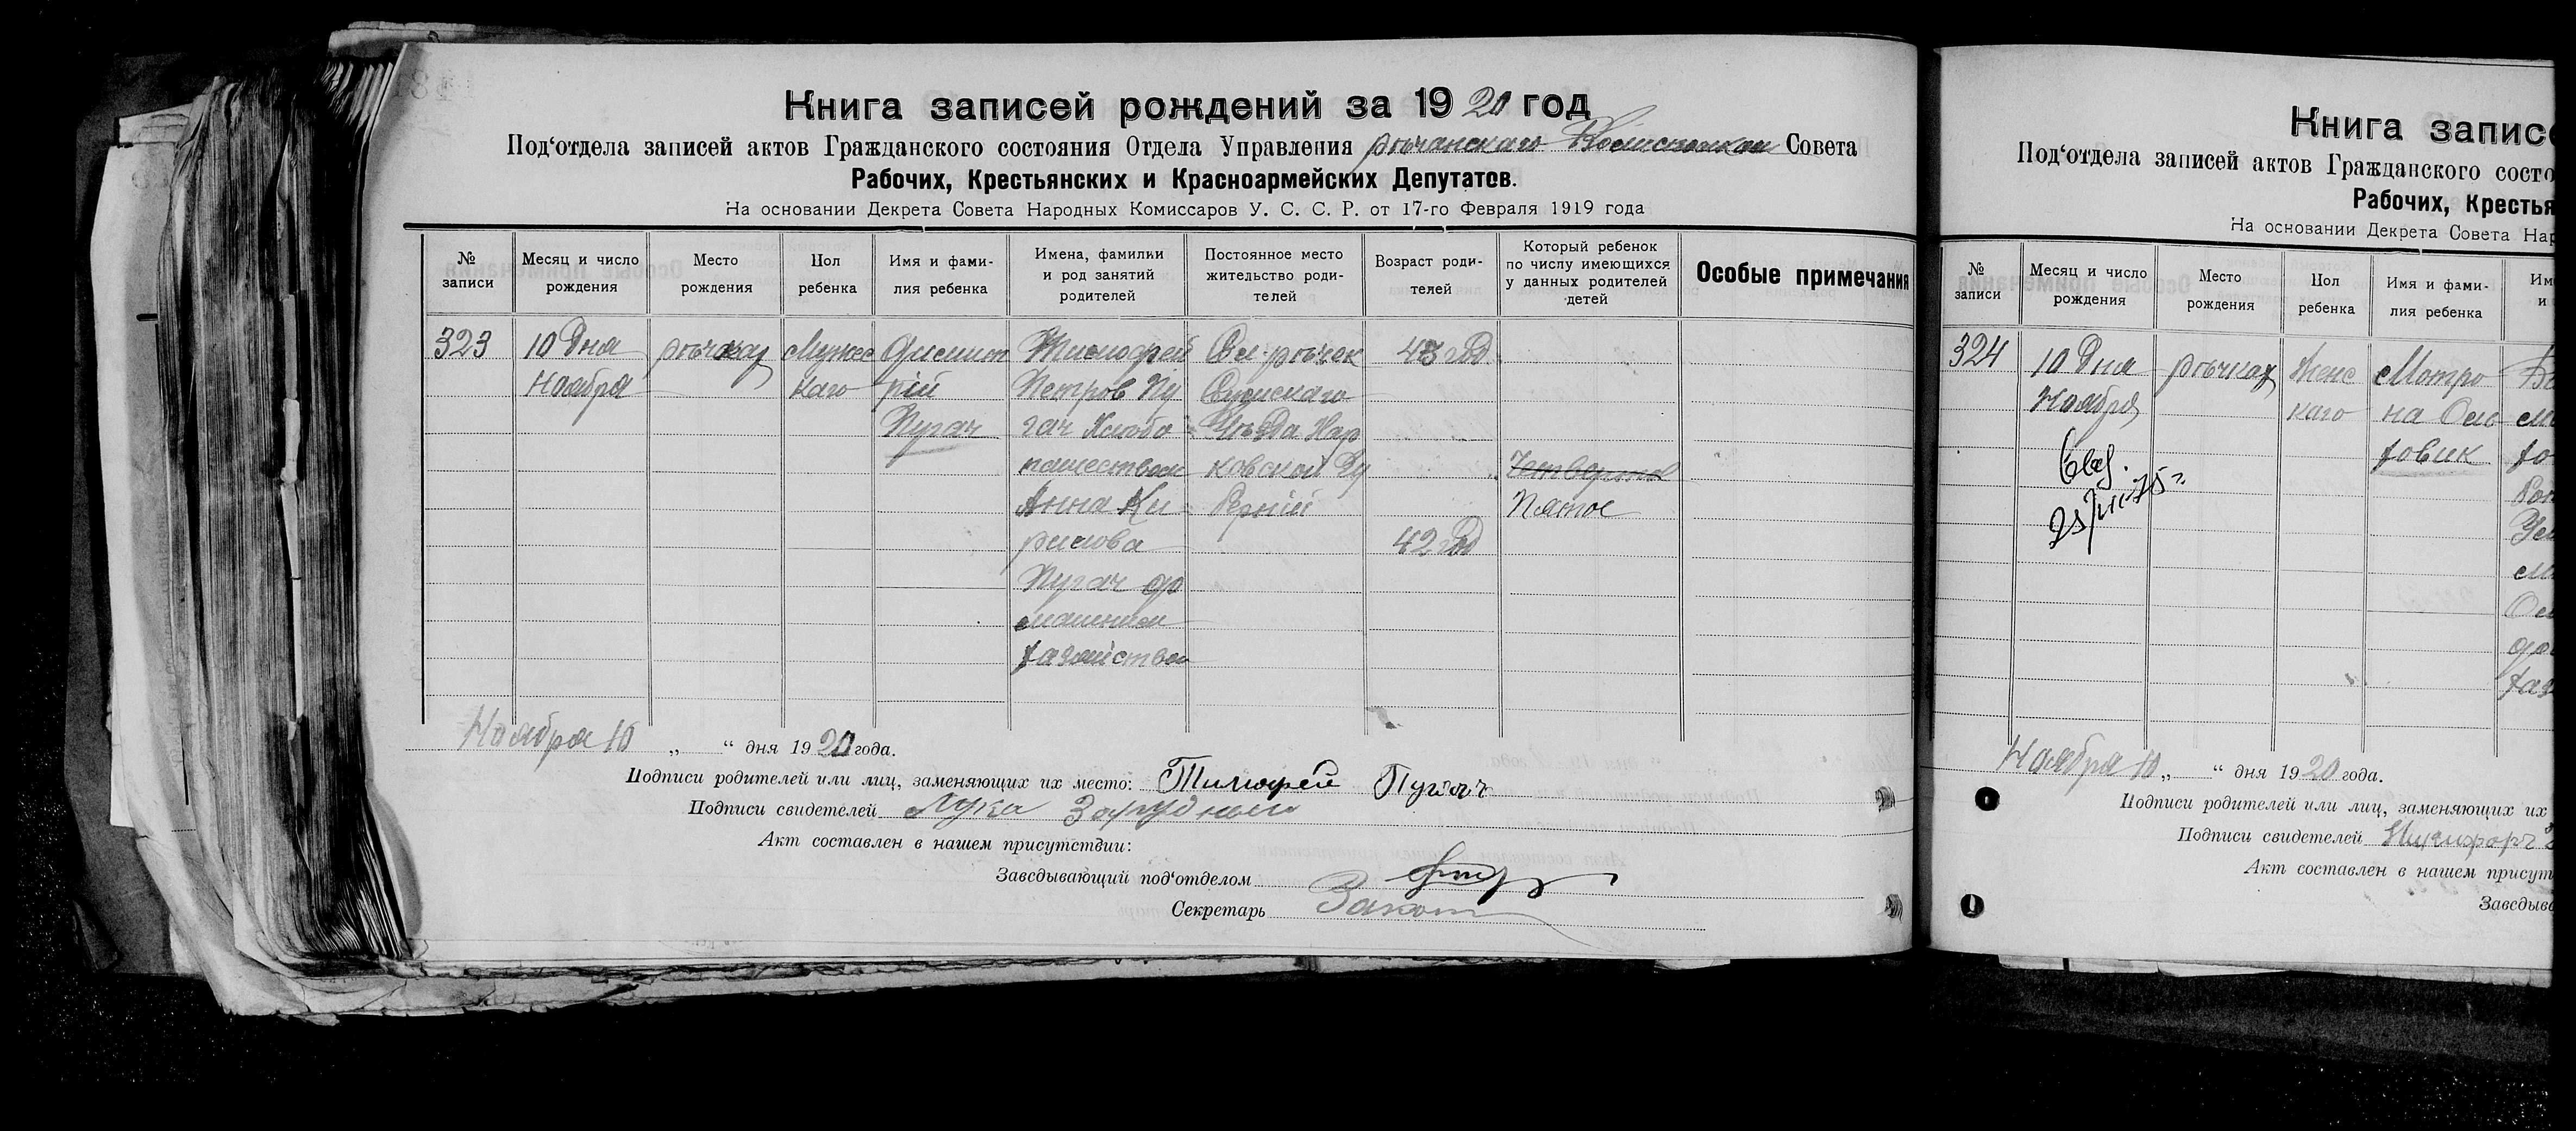 Книга записей рождений за 1920 год
Под‘отдела записей актов Гражданского состояния Отдела Управления рѣчанскаго Совета
Рабочих, Крестьянских и Красноармейских Депутатов.
На основании Декрета Совета Народных Комиссаров У. С. С. Р. от 17-го Февраля 1919 года
№ записи
Месяц и число рождения
Место рождения
Пол ребенка
Имя и фами-
лия ребенка
Имена, фамилии
и род занятий
родителей
Постоянное место
жительство роди-
телей
Возраст роди-
телей
Который ребенок
по числу имеющихся
у данных родителей
детей
Особые примечания
323
10 Дня
Ноября
рѣчках
Мужс
каго
Димит
рій
Пугач
Тимофей
Петров Пу
гач Хлебо
пашество
Анна Ки
рилова
Пугач до
машнем
хазайство
Сел. рѣчек
Сумскаго
Уѣзда Хар
ковской Гу
берніи
43 год
42 год
Четвертое
Пятое
Ноября 10 „ “ дня 1920 года.
Подписи родителей или лиц, заменяющих их место: Тимофей Пугач
Подписи свидетелей Лука Зарудный
Акт составлен в нашем присутствии:
Заведывающий под‘отделом
Секретарь
Книга записе
Под‘отдела записей актов Гражданского состо
Рабочих, Крестья
На основании Декрета Совета Нар
№ записи
Месяц и число
рождения
Место
рождения
Пол
ребенка
Имя и фами-
лия ребенка
Им
и
324
10 Дня
Ноября
рѣчках
Женс
каго
Мотро
на Оль
ховик
Ноября 10 „ “ дня 1920 года.
Подписи родителей или лиц, заменяющих их
Подписи свидетелей Никифоръ
Акт составлен в нашем присут
Заведыв